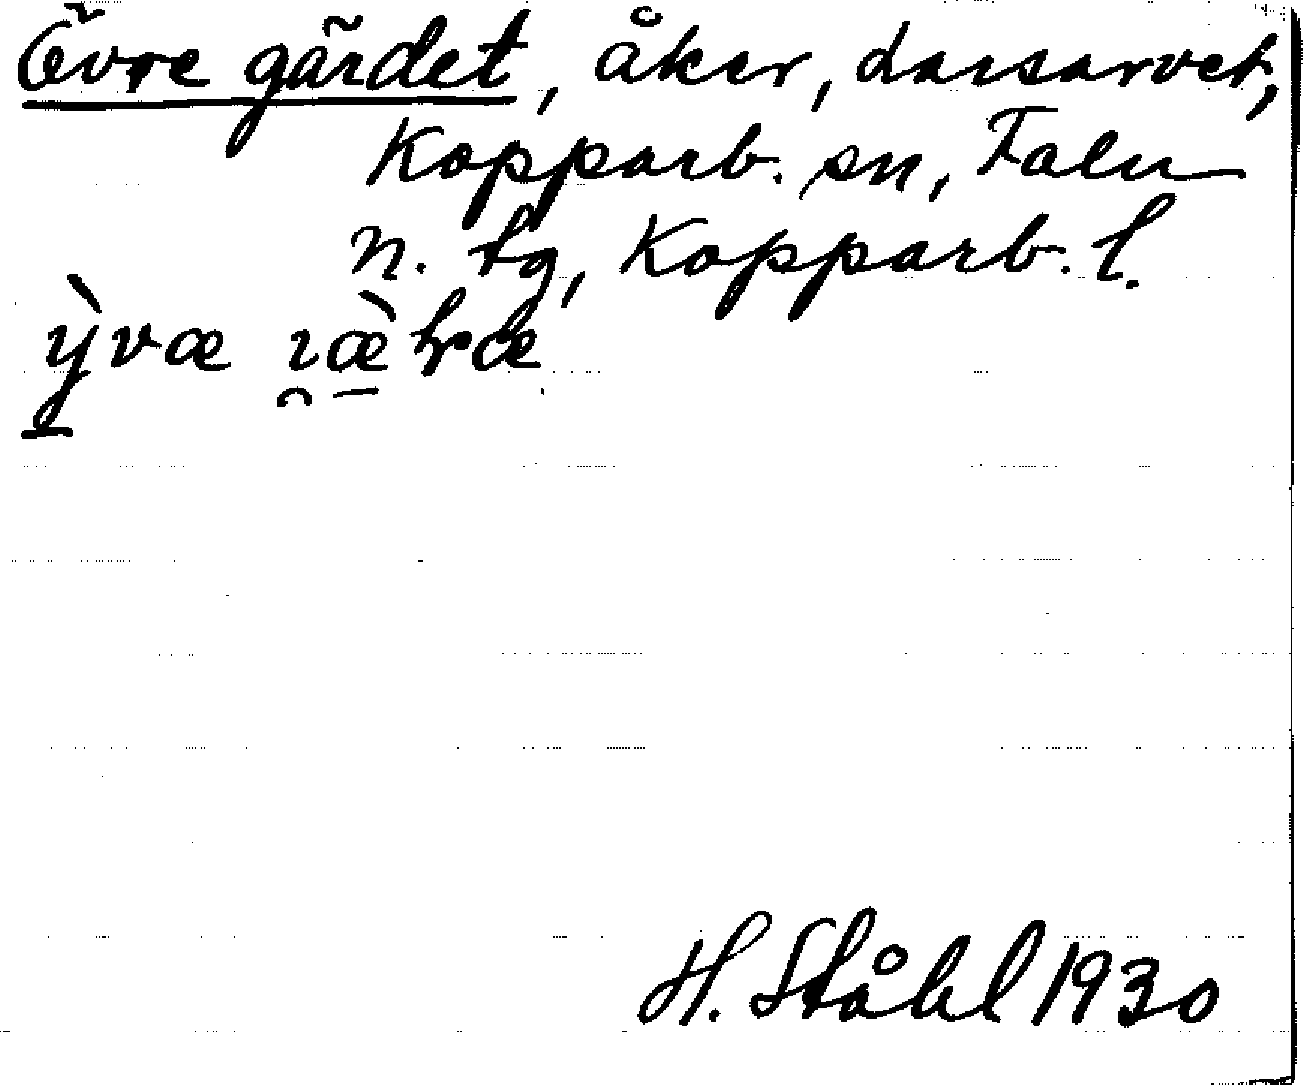 Övre gärdet, åker, Larsarvet,
Kopparb. sn, Falu
n. tg, Kopparb. l.
H. Ståhl 1930